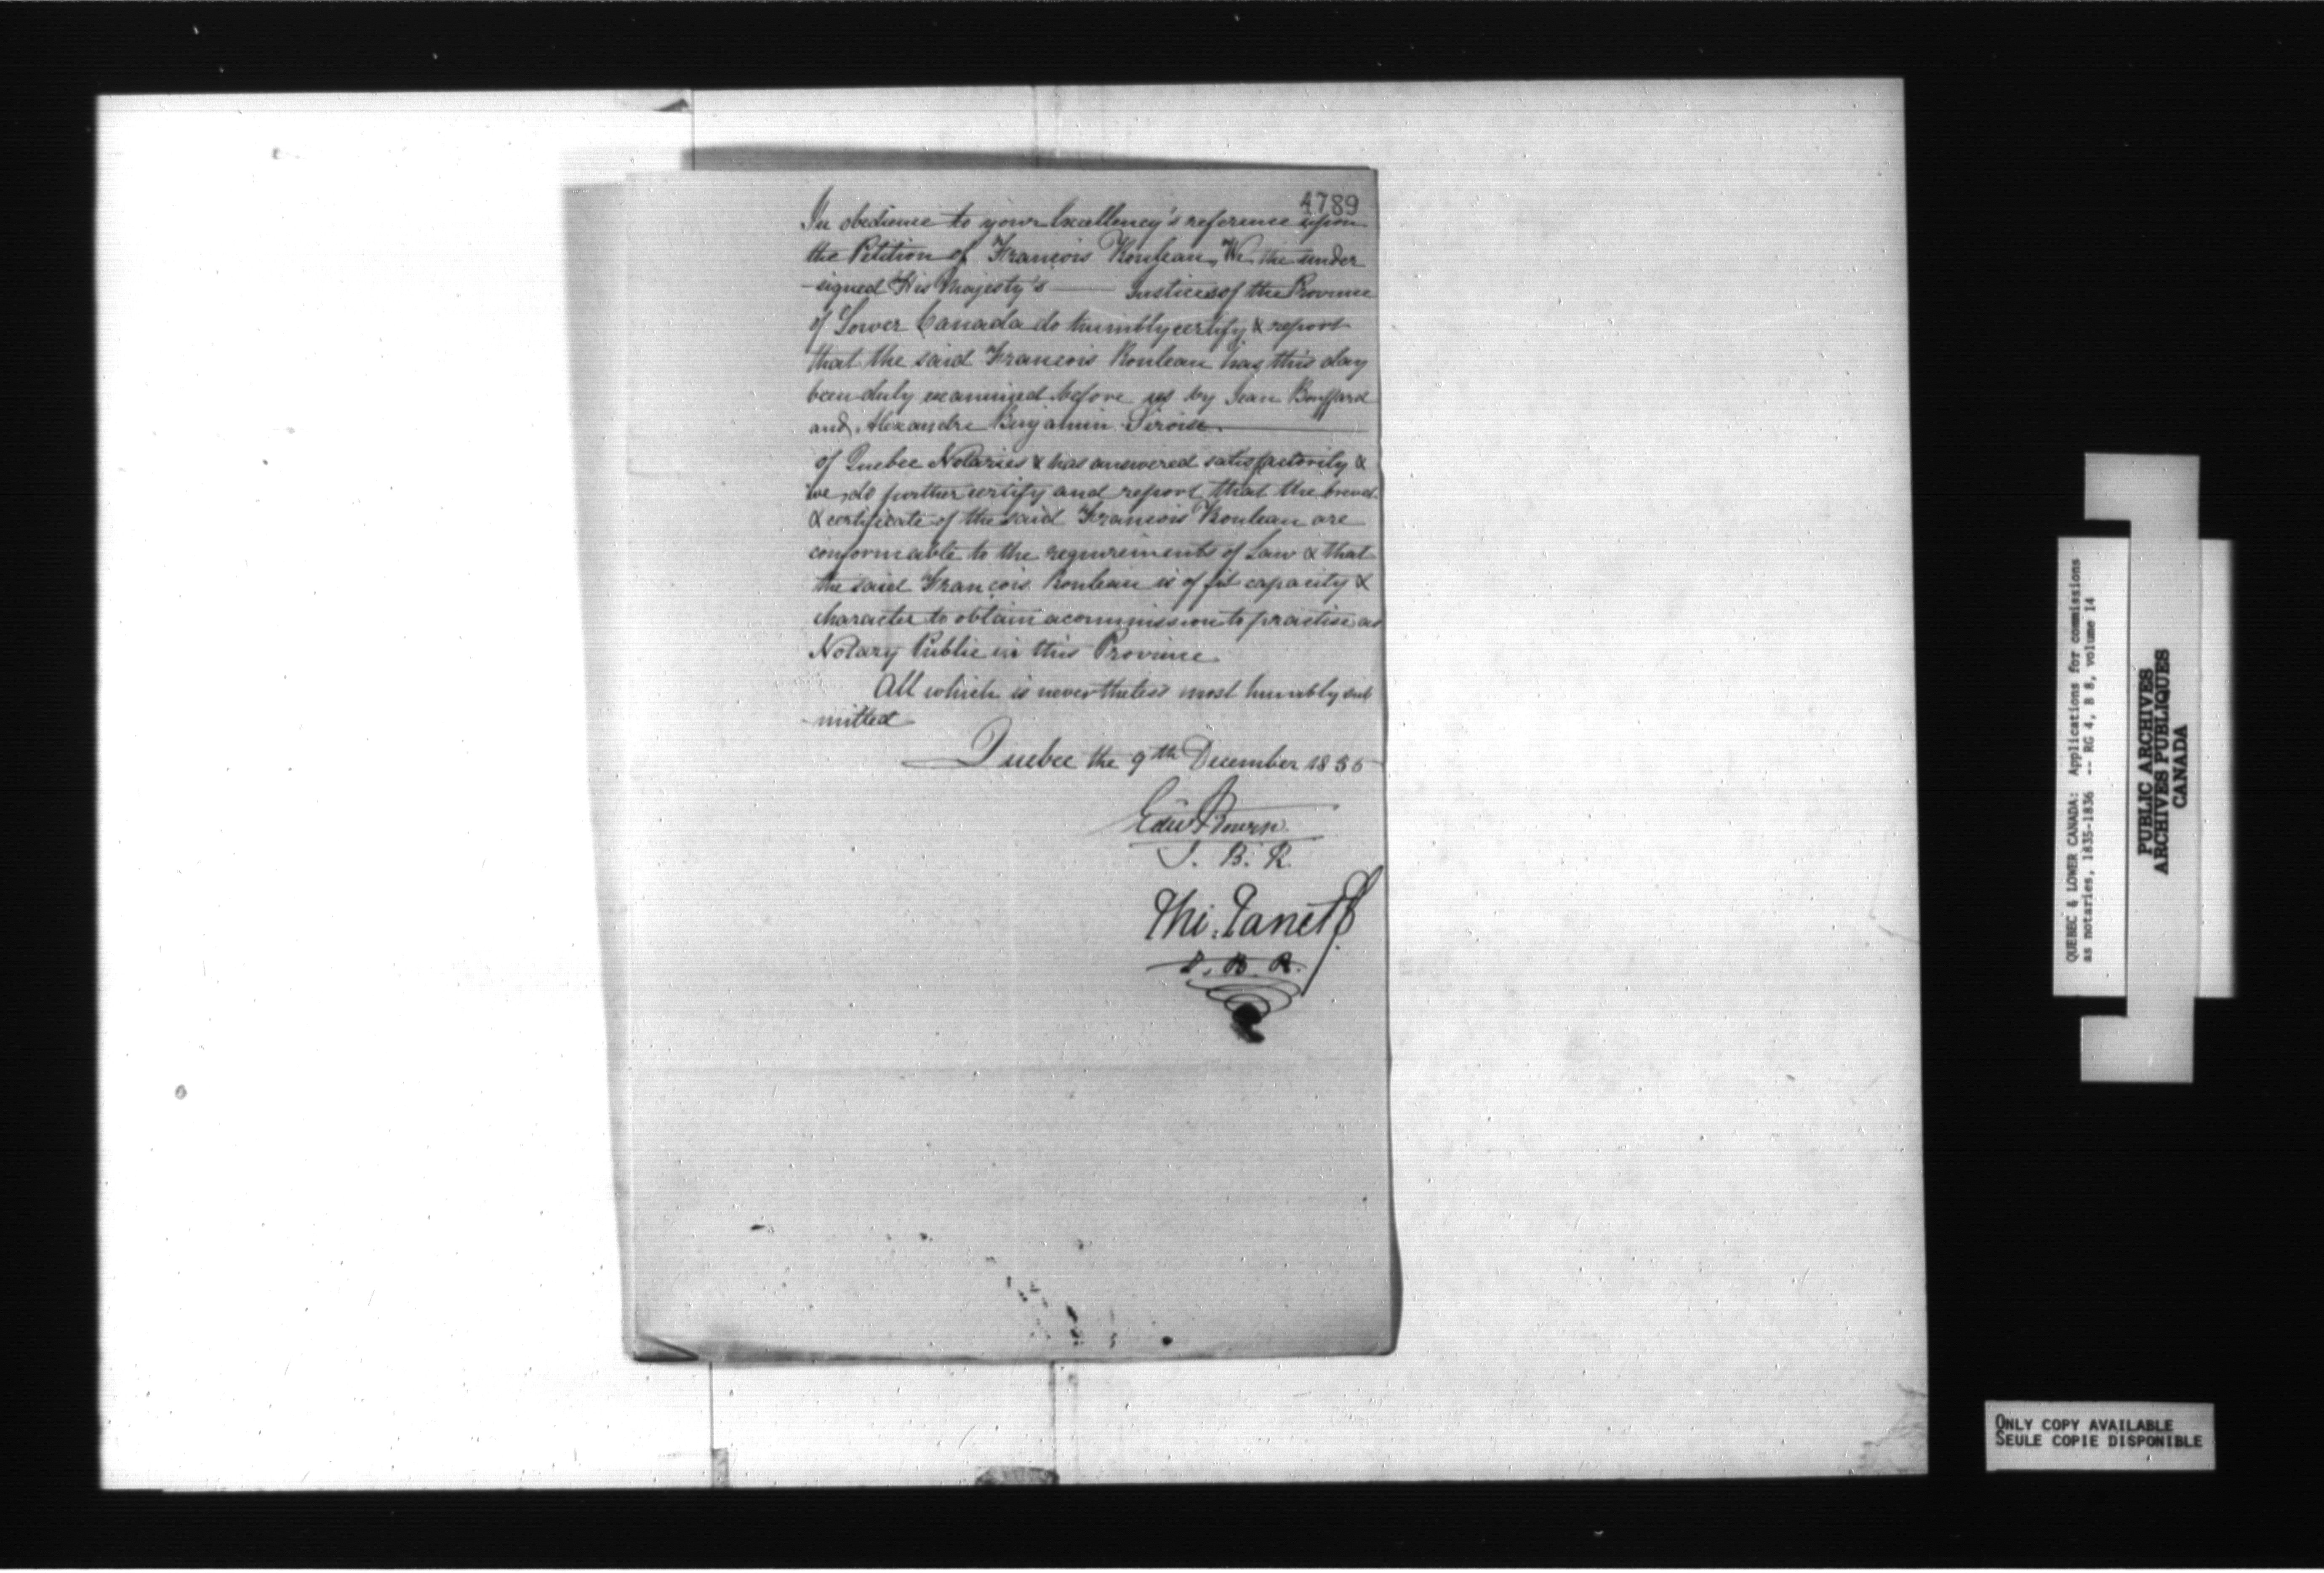 4789
In obedience to your Excellency's reference upon
the Petition of François Rouleau, We the under
-signed His Majesty's — Justices of the Province
of Lower Canada do humbly certify & report
that the said François Rouleau has this day
been duly examined before us by Jean Bouffard
and Alexandre Benjamin Sirois
of Quebec Notaries & has answered satisfactorily &
we do further certify and report that the brevet
& certificate of the said François Rouleau are
conformable to the requirements of Law & that
the said François Rouleau is of fit capacity &
character to obtain a commission to practise as
Notary Public in this Province
All which is nevertheless most humbly sub
-mitted
Quebec the 9th December 1835
Edw Bowen
J. B. R.
Phi. Panet
J. B. R.
QUEBEC & LOWER CANADA: Applications for commissions
as notaries, 1835-1836 -- RG 4, B 8, volume 14
PUBLIC ARCHIVES
ARCHIVES PUBLIQUES
CANADA
ONLY COPY AVAILABLE
SEULE COPIE DISPONIBLE